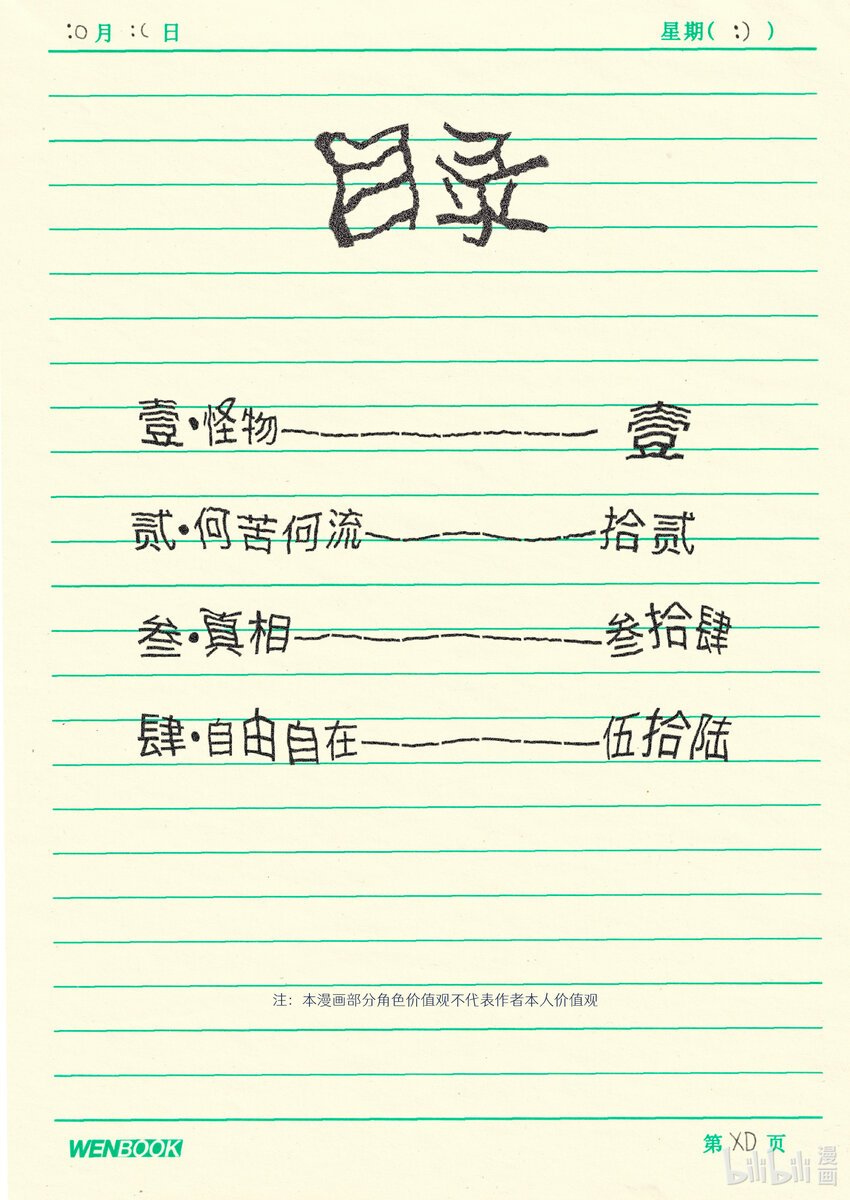 :O月 :(日 星期( :) )
目录
壹·怪物——————壹
贰·何苦何流——————拾贰
叁·真相——————叁拾肆
肆·自由自在——————伍拾陆
注：本漫画部分角色价值观不代表作者本人价值观
WENBOOK 第XD页
bilibili漫画